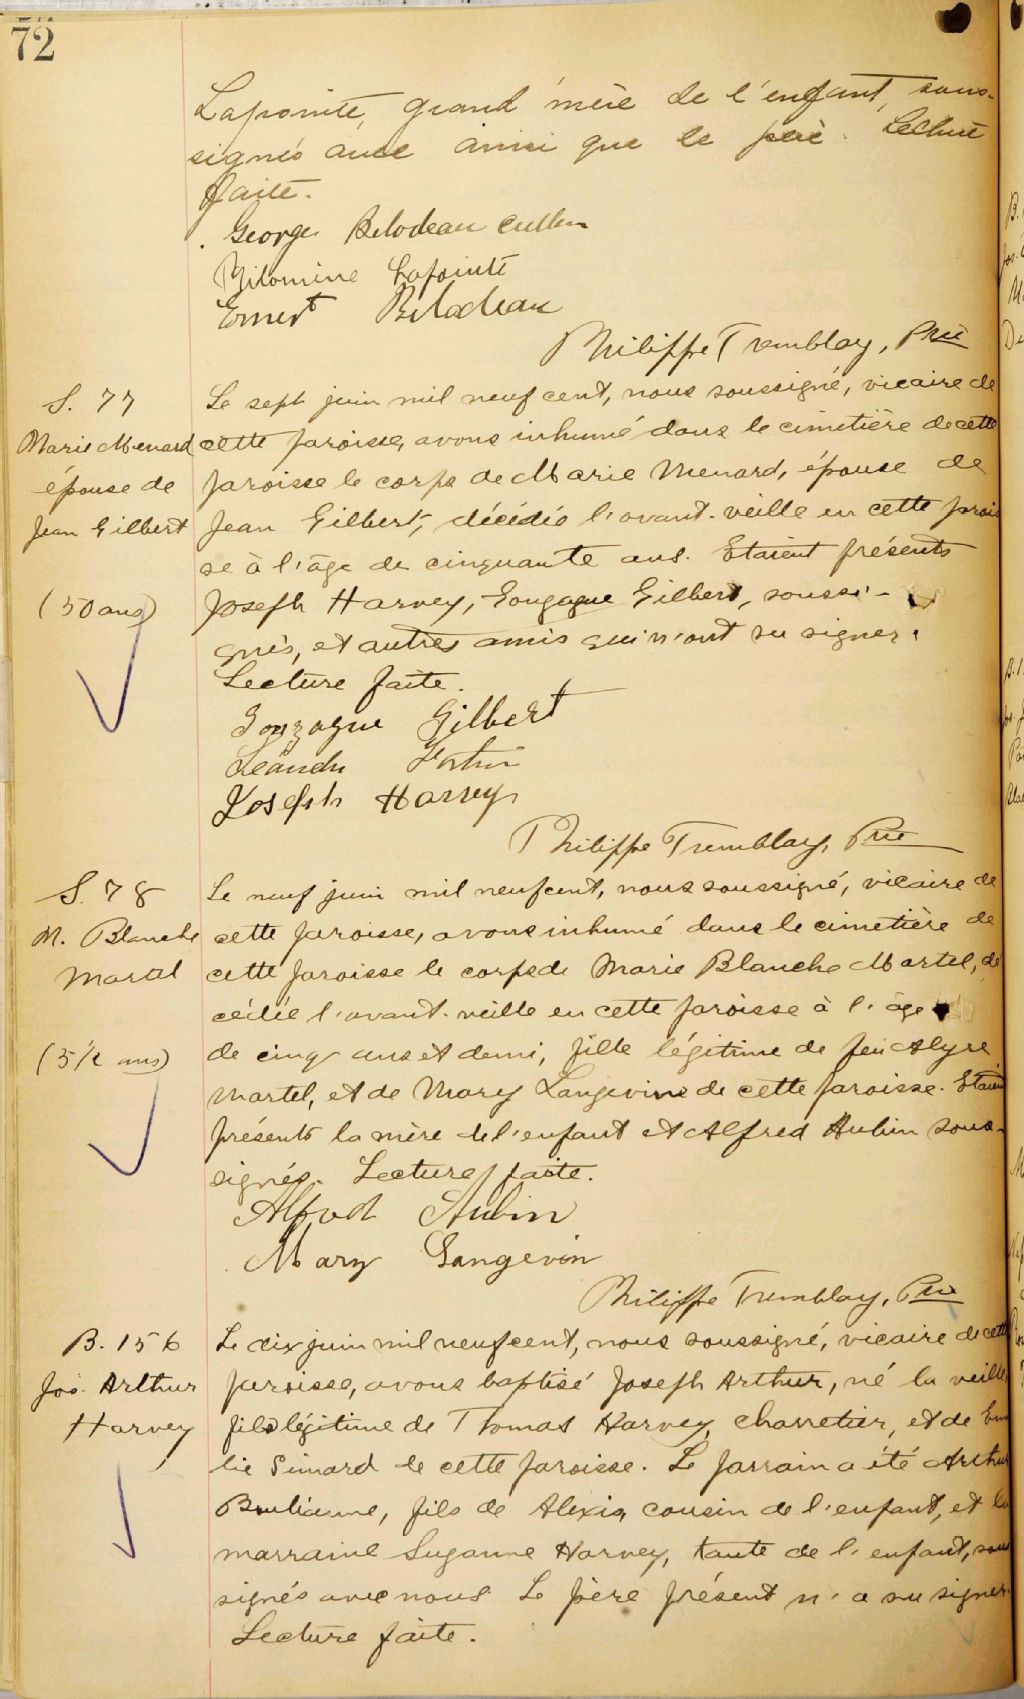 72
Lapointe, grand'mère de l'enfant, sous-
signés avec ainsi que le père. Lecture
faite.
George Belodeau Cullen
Philomine Lapointe
Ernest Belodeau
Philippe Tremblay, Ptre
S. 77
Marie Menard
épouse de
Jean Gilbert
(50 ans)
Le sept juin mil neuf cent, nous soussigné, vicaire de
cette paroisse, avons inhumé dans le cimetière de cette
paroisse le corps de Marie Menard, épouse de
Jean Gilbert, décédée l'avant-veille en cette parois
se à l'âge de cinquante ans. Etaient présents
Joseph Harvey, Gonzague Gilbert, soussi-
gnés, et autres amis qui n'ont su signer.
Lecture faite.
Gonzague Gilbert
Léandre Fortin
Joseph Harvey
Philippe Tremblay, Ptre
S. 78
M. Blanche
Martel
(5 1/2 ans)
Le neuf juin mil neuf cent, nous soussigné, vicaire de
cette paroisse, avons inhumé dans le cimetière de
cette paroisse le corps de Marie Blanche Martel, dé
cédée l'avant-veille en cette paroisse à l'âge
de cinq ans et demi, fille légitime de feu Alyre
Martel, et de Mary Langevin de cette paroisse. Etaient
présents la mère de l'enfant et Alfred Aubin sous-
signés. Lecture faite.
Alfred Aubin
Mary Langevin
Philippe Tremblay, Ptre
B. 156
Jos. Arthur
Harvey
Le dix juin mil neuf cent, nous soussigné, vicaire de cette
paroisse, avons baptisé Joseph Arthur, né la veille
fils légitime de Thomas Harvey, charretier, et de Emi
lie Simard de cette paroisse. Le parrain a été Arthur
Boulianne, fils de Alexis, cousin de l'enfant, et la
marraine Suzanne Harvey, tante de l'enfant, sous
signés avec nous. Le père présent n'a su signer.
Lecture faite.